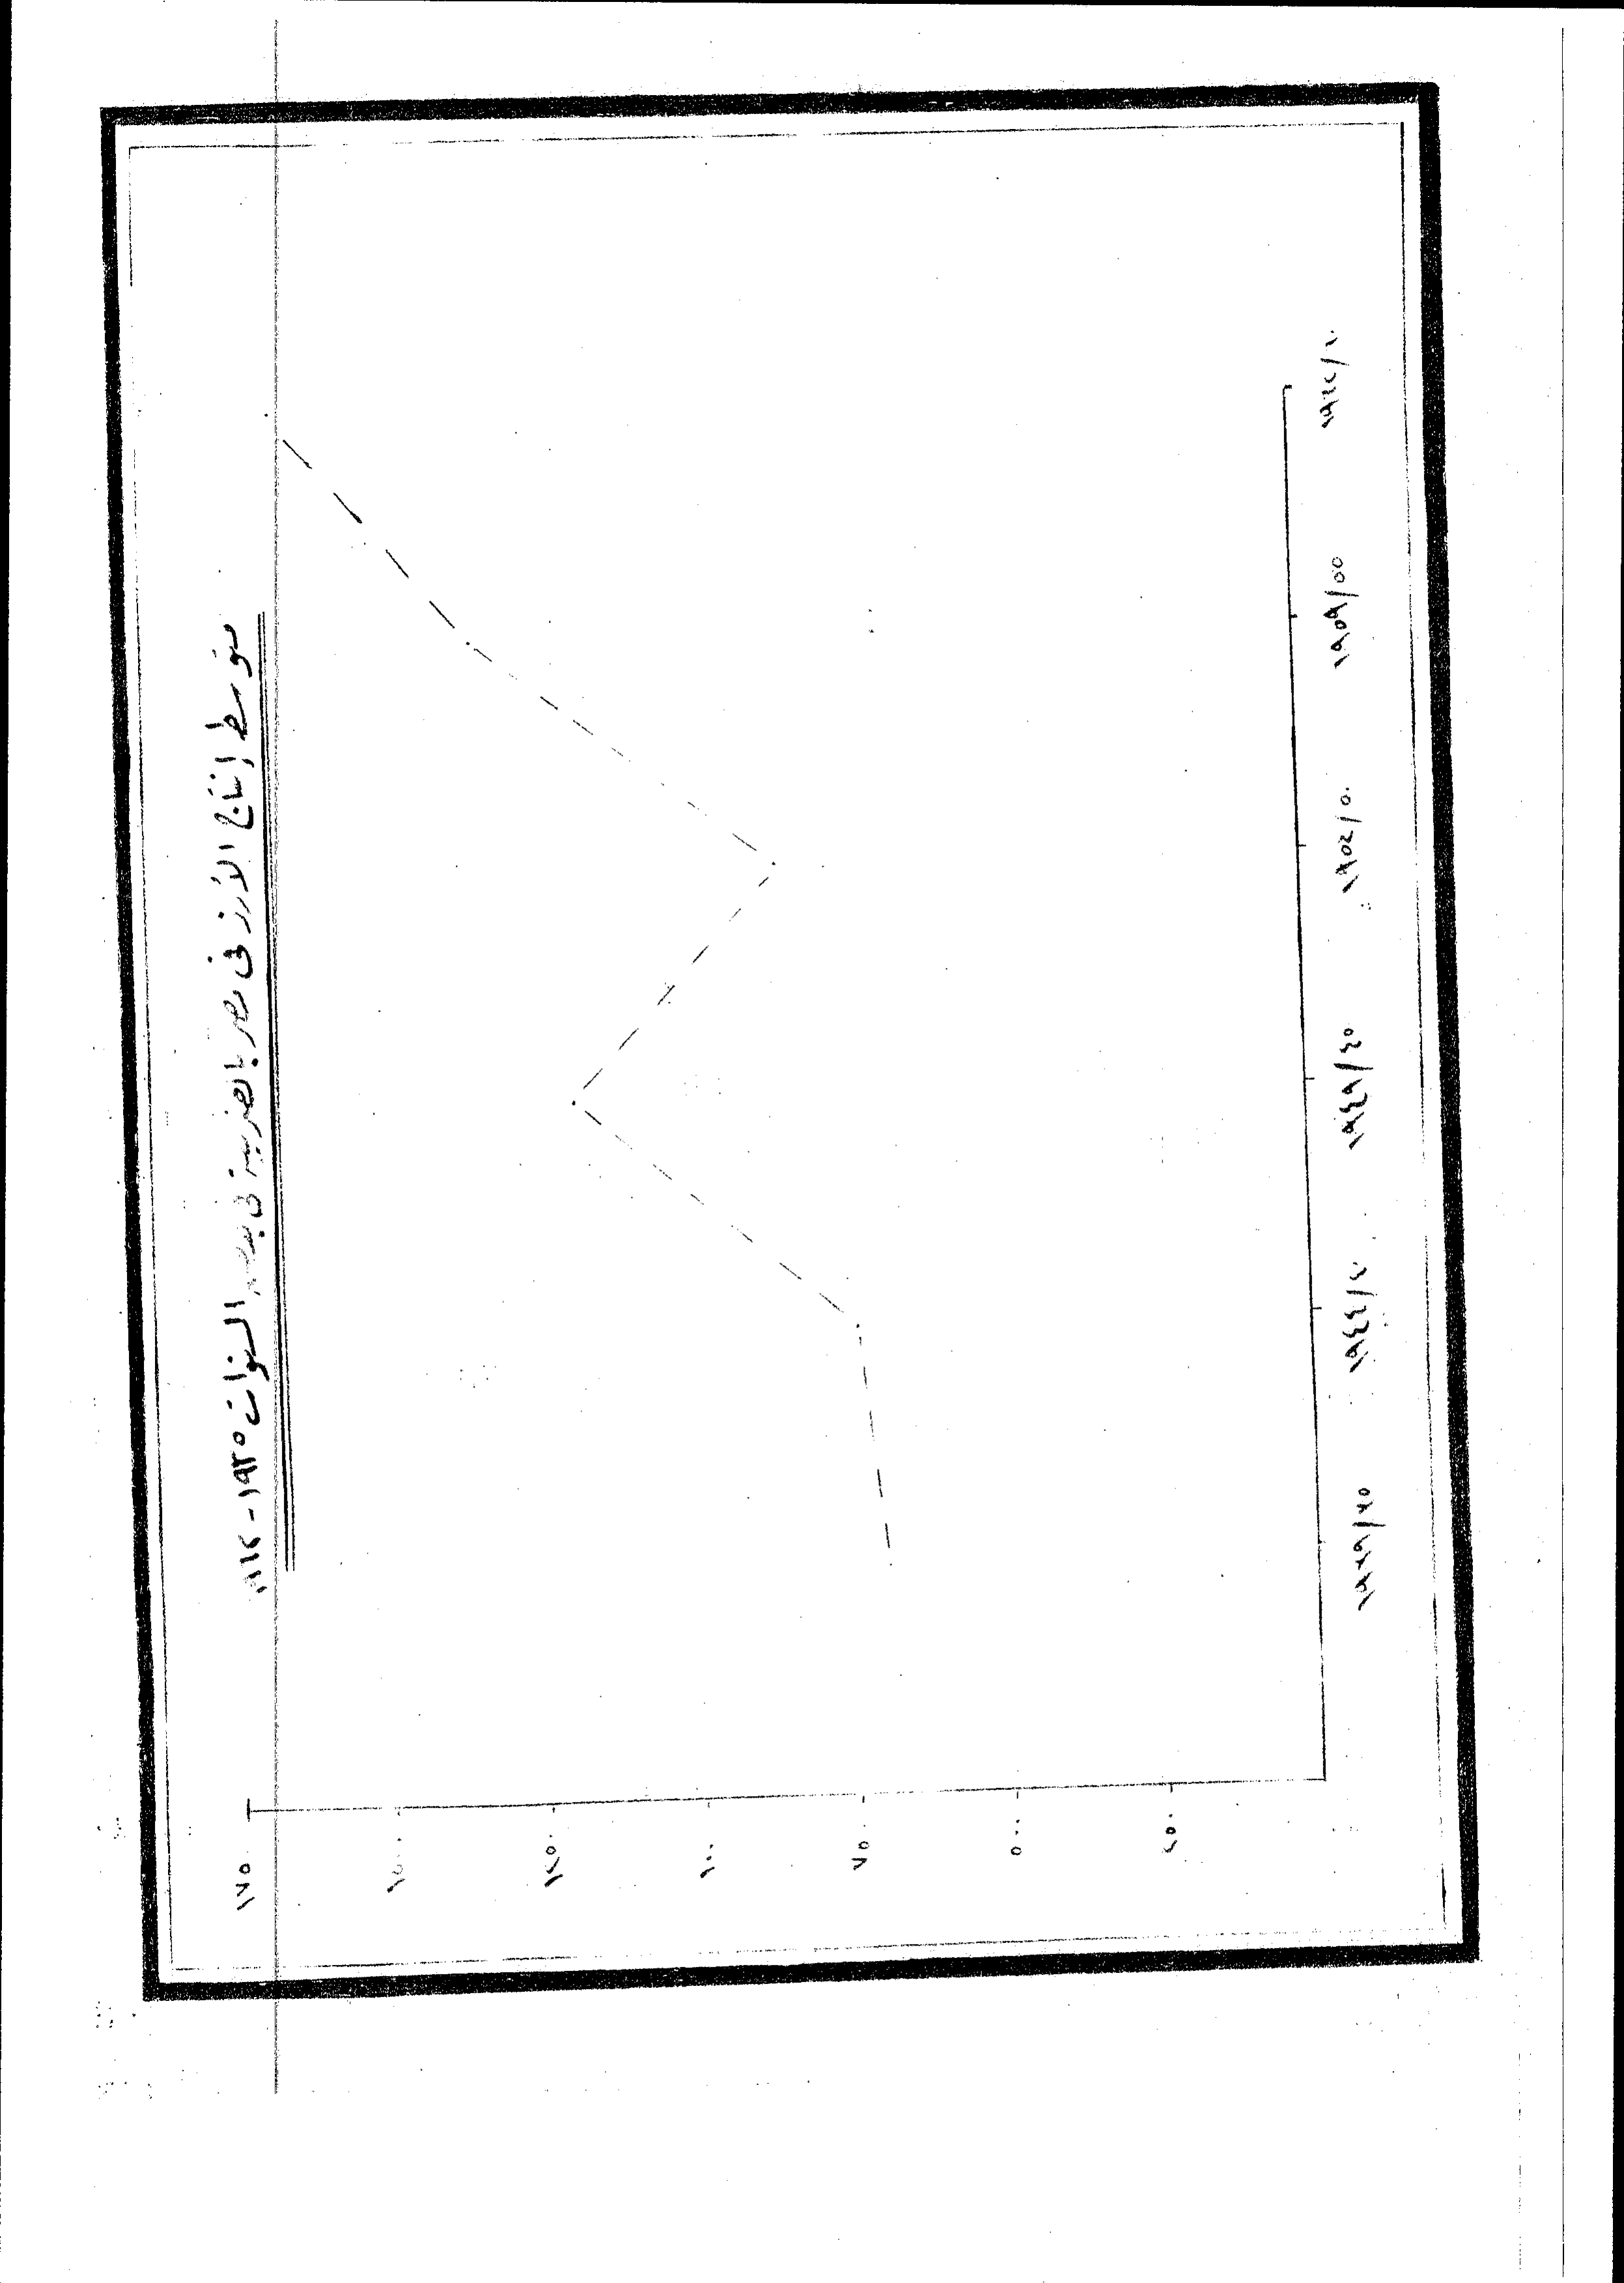 متوسط إنتاج الأرز فى مصر بالضريبة فى بعض السنوات ١٩٣٥-
١٧٥٠
١٥٠٠
١٢٥٠
١٠٠٠
٧٥٠
٥٠٠
٢٥٠
١٩٣٩/٣٥
١٩٤٤/٤٠
١٩٤٩/٤٥
١٩٥٤/٥٠
١٩٥٩/٥٥